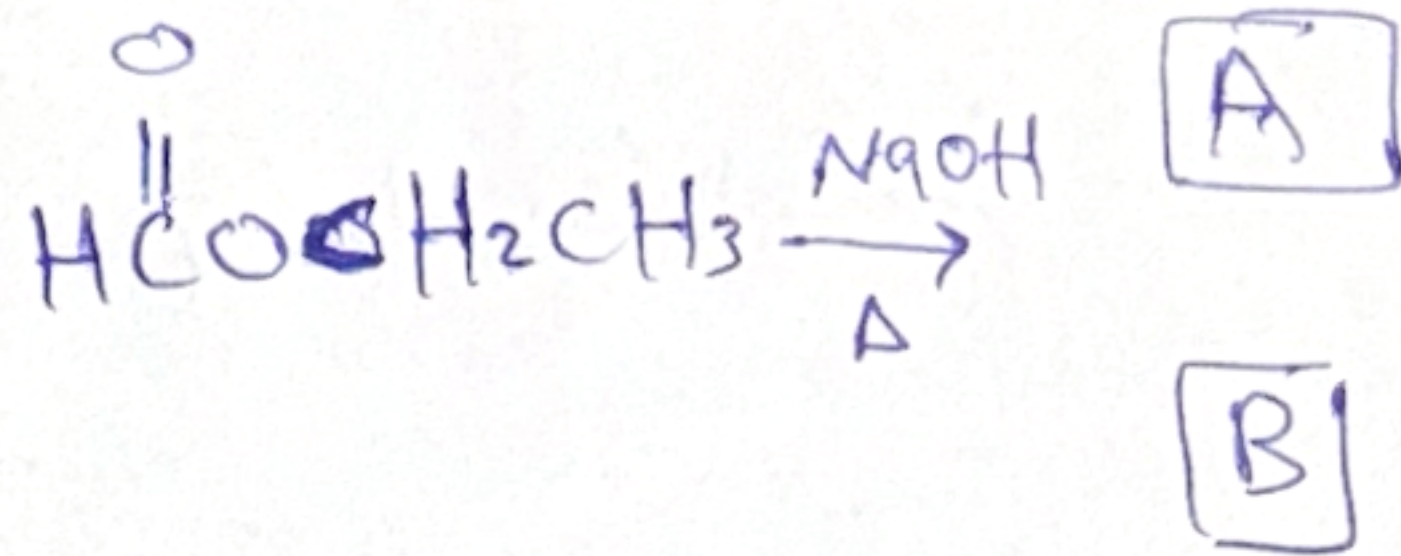 O
||
HCOCH₂CH₃ NaOH → A
Δ
B